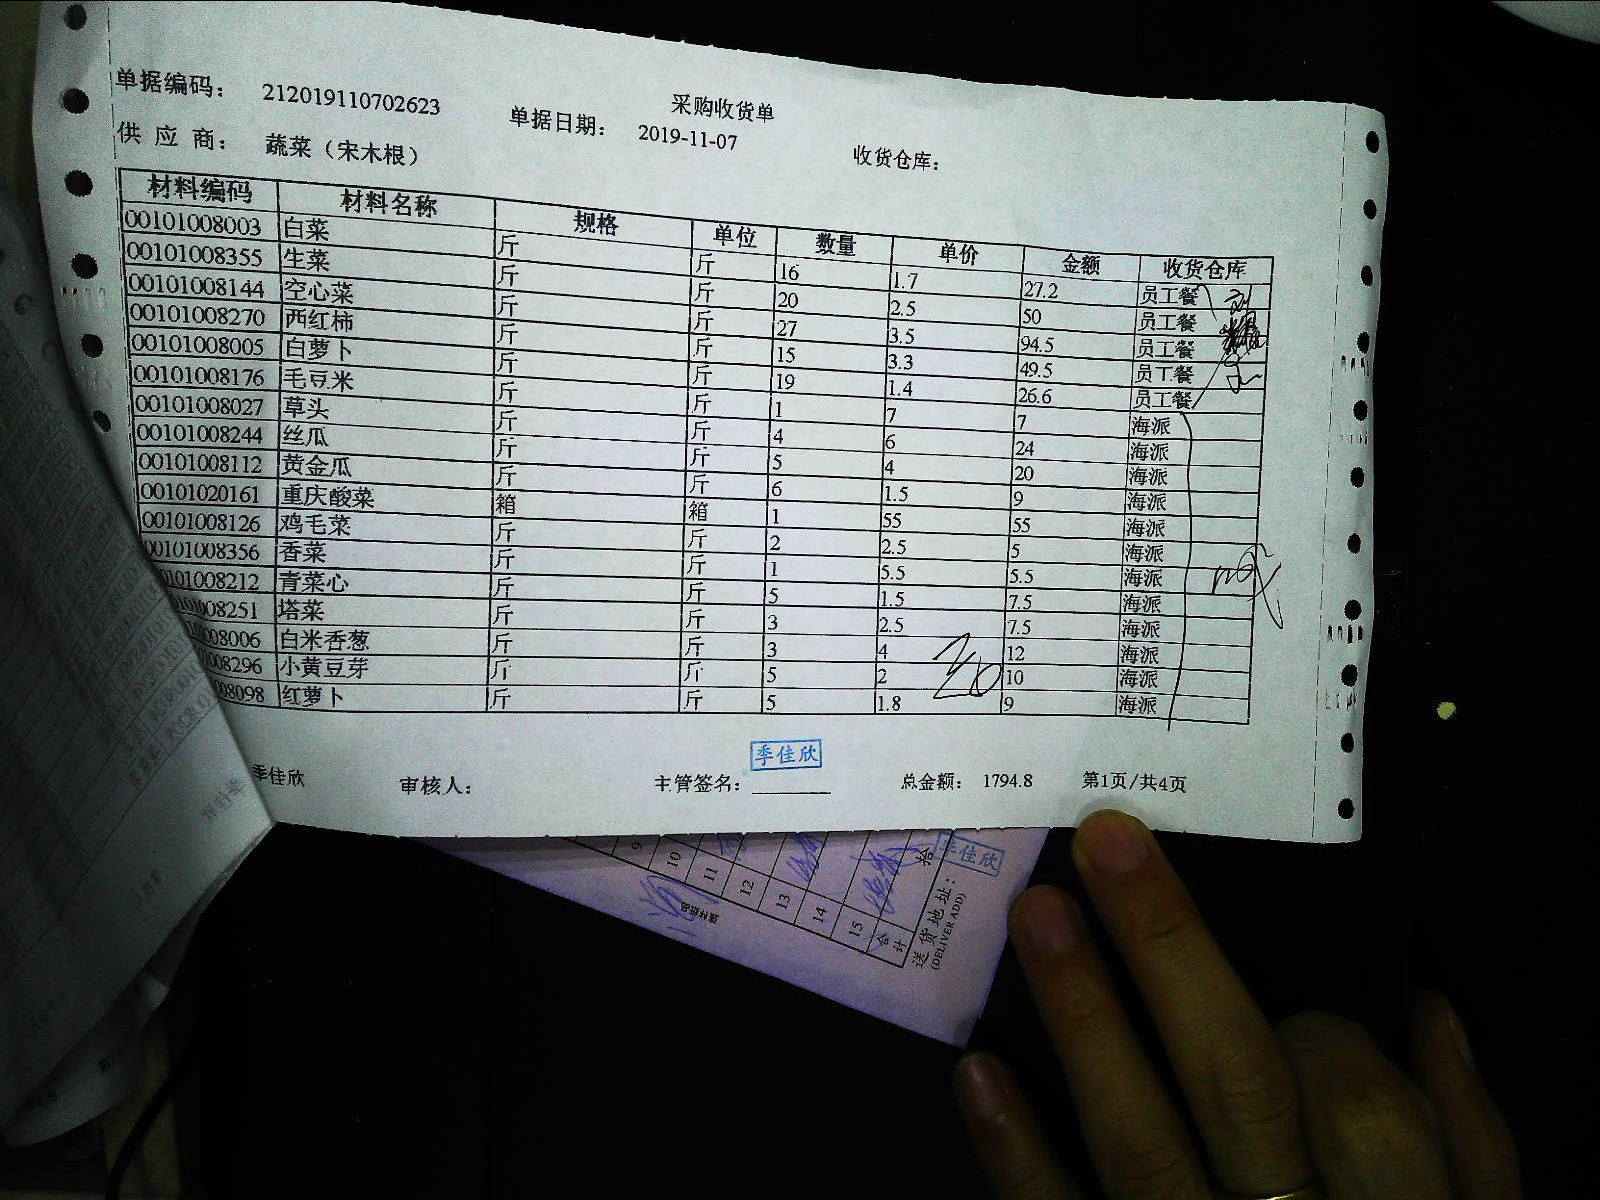 采购收货单
单据编码： 212019110702623 单据日期： 2019-11-07 收货仓库：
供 应 商： 蔬菜（宋木根）
材料编码 材料名称 规格 单位 数量 单价 金额 收货仓库
00101008003 白菜 斤 斤 16 1.7 27.2 员工餐
00101008355 生菜 斤 斤 20 2.5 50 员工餐
00101008144 空心菜 斤 斤 27 3.5 94.5 员工餐
00101008270 西红柿 斤 斤 15 3.3 49.5 员工餐
00101008005 白萝卜 斤 斤 19 1.4 26.6 员工餐
00101008176 毛豆米 斤 斤 1 7 7 海派
00101008027 草头 斤 斤 4 6 24 海派
00101008244 丝瓜 斤 斤 5 4 20 海派
00101008112 黄金瓜 斤 斤 6 1.5 9 海派
00101020161 重庆酸菜 箱 箱 1 55 55 海派
00101008126 鸡毛菜 斤 斤 2 2.5 5 海派
00101008356 香菜 斤 斤 1 5.5 5.5 海派
0101008212 青菜心 斤 斤 5 1.5 7.5 海派
01008251 塔菜 斤 斤 3 2.5 7.5 海派
1008006 白米香葱 斤 斤 3 4 12 海派
1008296 小黄豆芽 斤 斤 5 2 10 海派
008098 红萝卜 斤 斤 5 1.8 9 海派
季佳欣
季佳欣 审核人： 主管签名： 总金额： 1794.8 第1页/共4页
9
10
11
12
13
14
15
合计
拾
季佳欣
送货地址：
(DELIVER ADD)